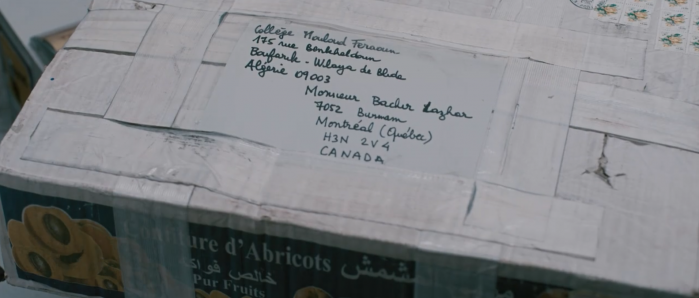 Collège Mouloud Feraoun
175 rue Benkheldoun
Boufarik - Wilaya de Blida
Algérie 09003
Monsieur Bachir Lazhar
7052 Burnam
Montréal (Québec)
H3N 2V4
CANADA
ure d'Abricots
مشمش
خالص فواكه
Pur Fruits